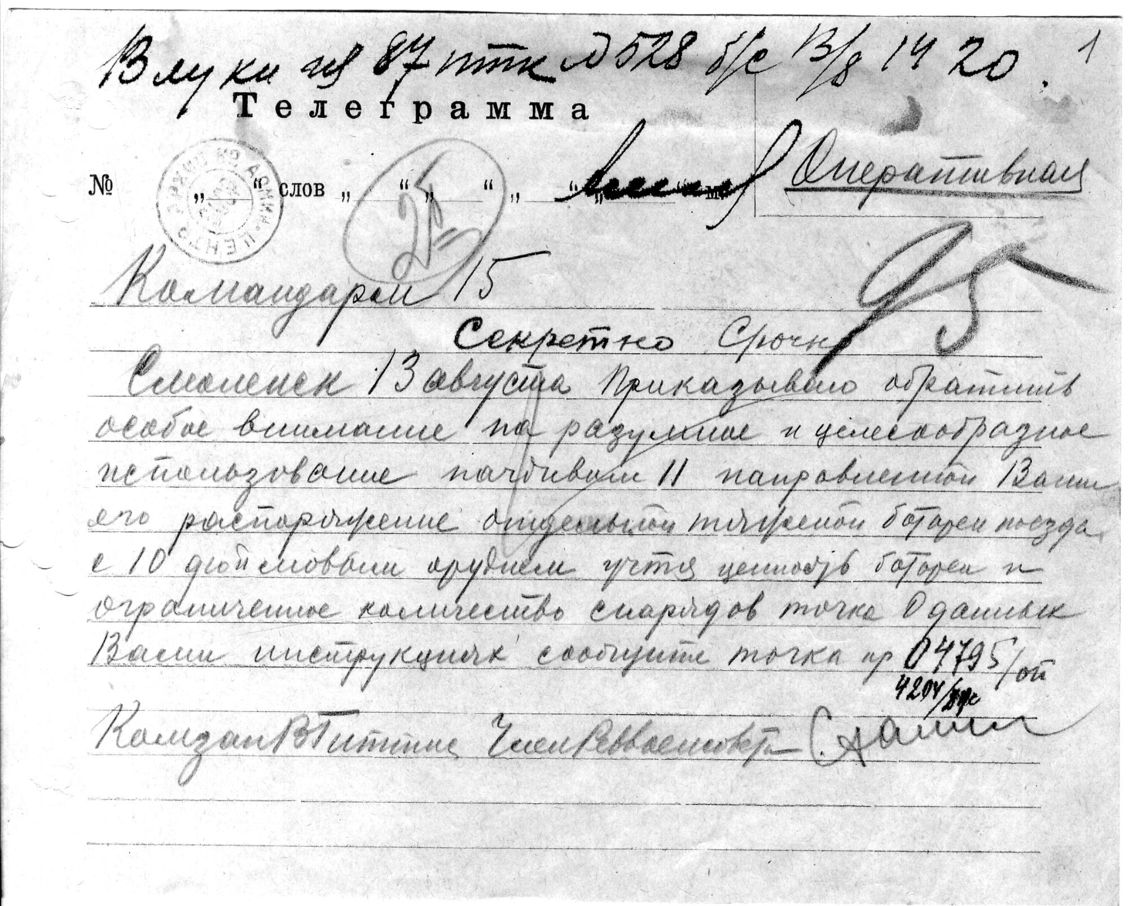 В луки 87 птк 528 б/с 13/8 14 20 1
Телеграмма
№ „ “ слов „ “ “ „ “ Оперативная
25
Командарм 15
95
Секретно Срочно
Смоленск 13 августа Приказываю обратить
особое внимание на разумное и целесообразное
использование начдивом 11 направленной Вами
его распоряжение отдельной тяжелой батареи поезда
с 10 дюймовым орудием учтя ценность батареи и
ограниченное количество снарядов точка О данных
Вами инструкциях сообщите точка нр 04795/оп
4204/
Комзап В Гиттис Член Реввоенсовета Сталин